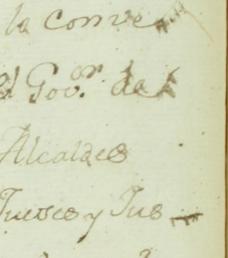 la conve
el Gov.or de
Alcaldes
Jueses y Jus